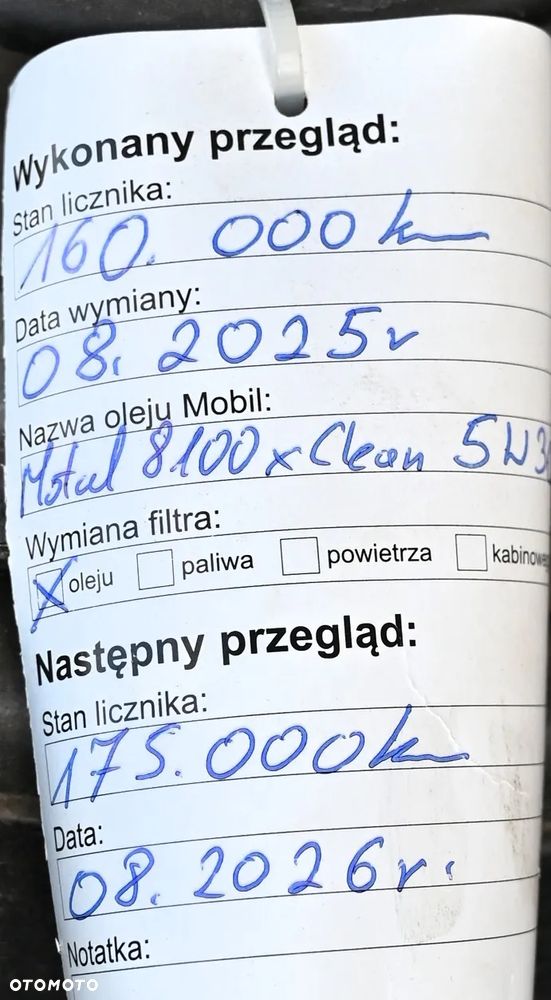 Wykonany przegląd:
Stan licznika:
160. 000 km
Data wymiany:
08. 2025r
Nazwa oleju Mobil:
Motul 8100 x Clean 5W30
Wymiana filtra:
oleju paliwa powietrza kabinowe
Następny przegląd:
Stan licznika:
175. 000 km
Data:
08. 2026r.
Notatka:
OTOMOTO